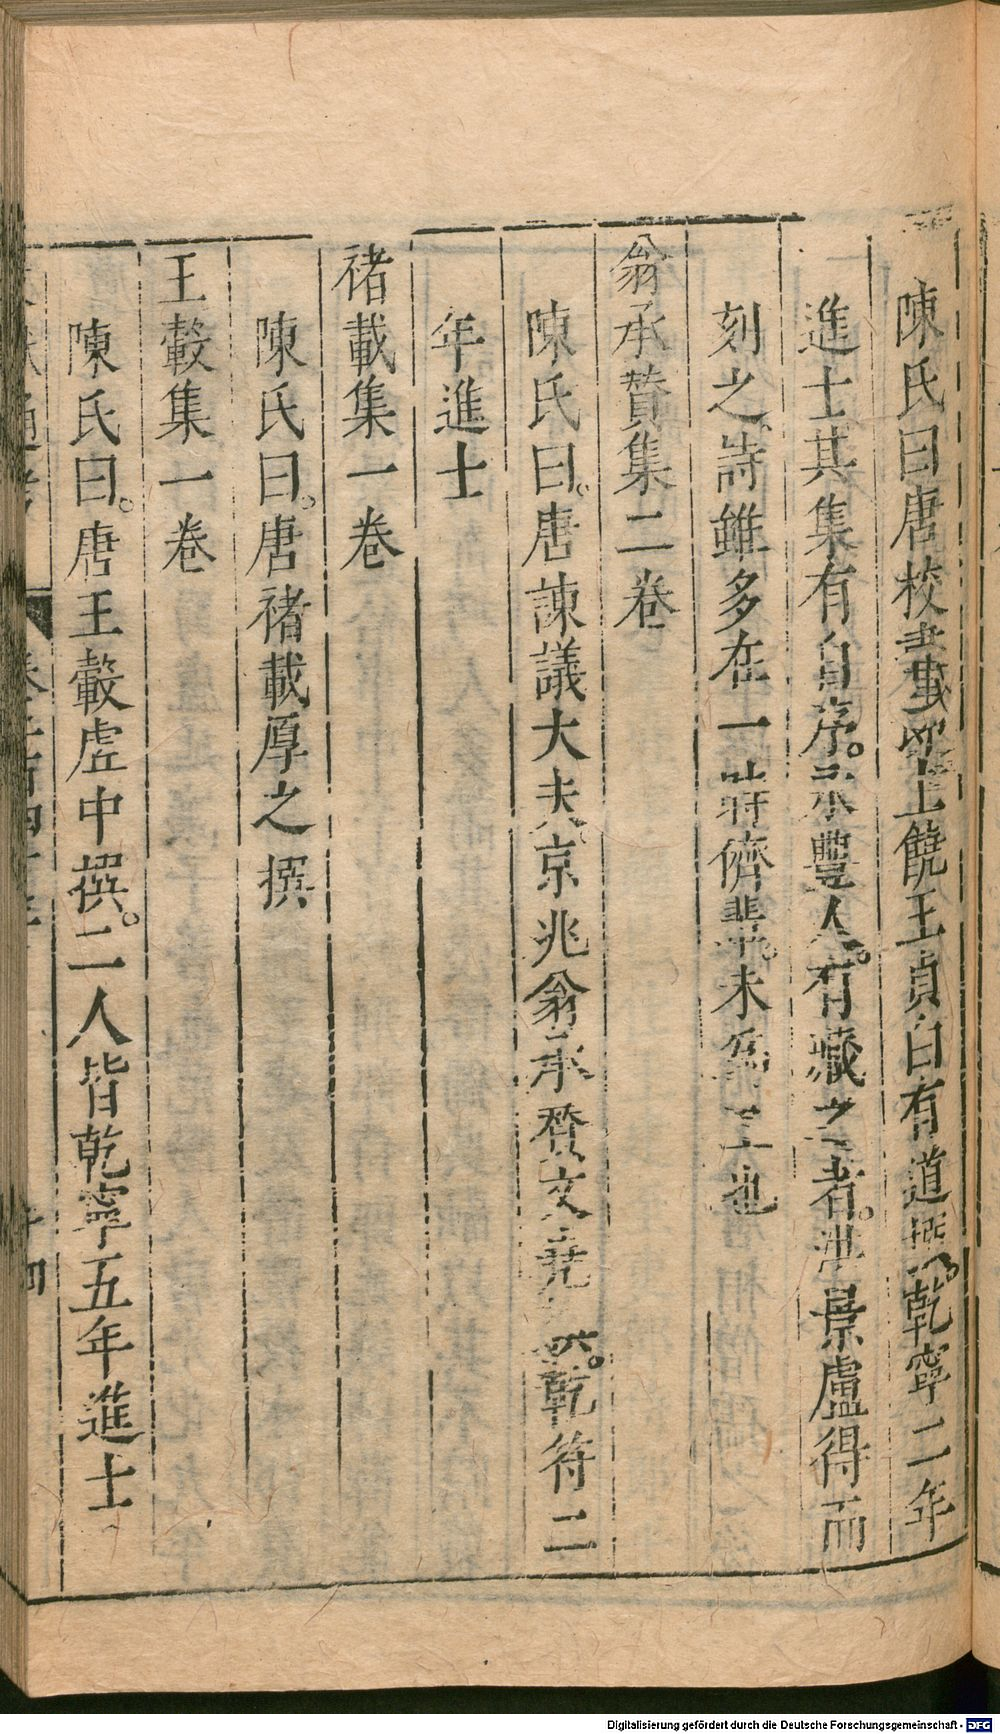 陳氏曰唐校書郎上饒王貞白有道撰。乾寧二年
進士其集有自序。永豐人。有藏之者。洪景盧得而
刻之。詩雖多在一時儕輩。未為工也
翁承贊集一卷
陳氏曰。唐諫議大夫。京兆翁承贊文堯撰。乾符二
年進士
褚載集一卷
陳氏曰。唐褚載厚之撰
王轂集一卷
陳氏曰。唐王轂虛中撰。二人皆乾寧五年進士
通考 卷二百四十三 十四
Digitalisierung gefördert durch die Deutsche Forschungsgemeinschaft - DFG